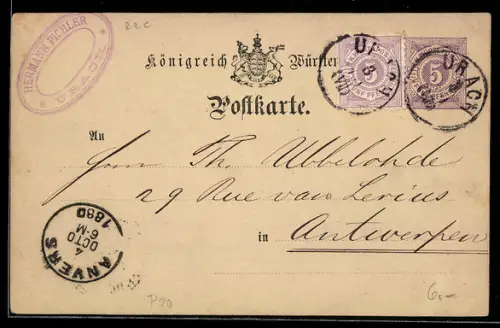 22c
HERMANN PICHLER
* URACH *
Königreich Württem
Postkarte.
URACH
5
URACH
5
An
Herrn Th. Ubbelohde
29 Rue van Lerius
in Antwerpen
ANVERS
4
OCTO
6-M
1880
P 20
6.-